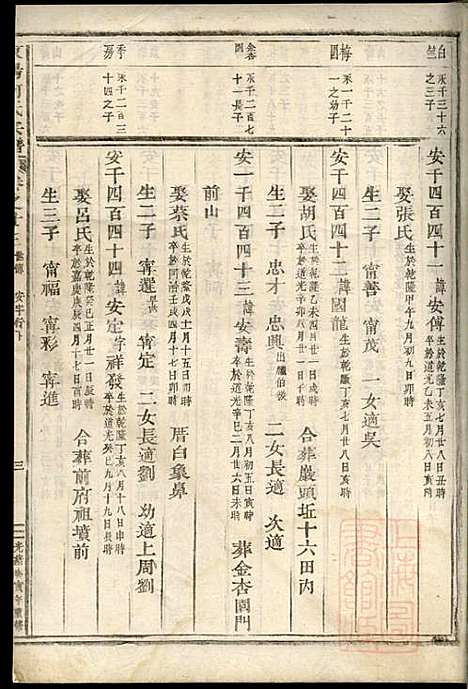 白竺
永千三十六之三子
安千四百四十一諱安傅生於乾隆丁亥七月廿八丑時卒於道光乙未五月初六子時
娶張氏生於乾隆甲午九月初九日時
生二子 甯善 甯茂 一女適吳
梅園
永一千二十一之幼子
安千四百四十二諱國龍生於乾隆丁亥七月廿八戌時
娶胡氏生於乾隆乙未四月廿一日戌時 合葬嚴頭坵十六田內
生二子 忠才 忠興出繼伯後 二女長適 次適
金杏園
永千二百七十一長子
安一千四百四十三諱安壽生於乾隆丁亥八月初五日寅時卒於道光辛巳二月廿六日未時 葬金杏園門
前山
娶蔡氏生於乾隆戊戌十一月十五日卯時 厝白象鼻
生二子 甯選早世 甯定 二女長適劉 幼適上周劉
季房
永千二百三十四之子
安千四百四十四諱安定字祥發生於乾隆丁亥八月十八日申時卒於道光癸巳九月十九日辰時
娶呂氏生於乾隆癸巳正月廿一日辰時卒於嘉慶庚辰四月十七日酉時 合葬前府祖墳前
生三子 甯福 甯彩 甯進
世傳 安字行下
三
光緒庚寅年重修